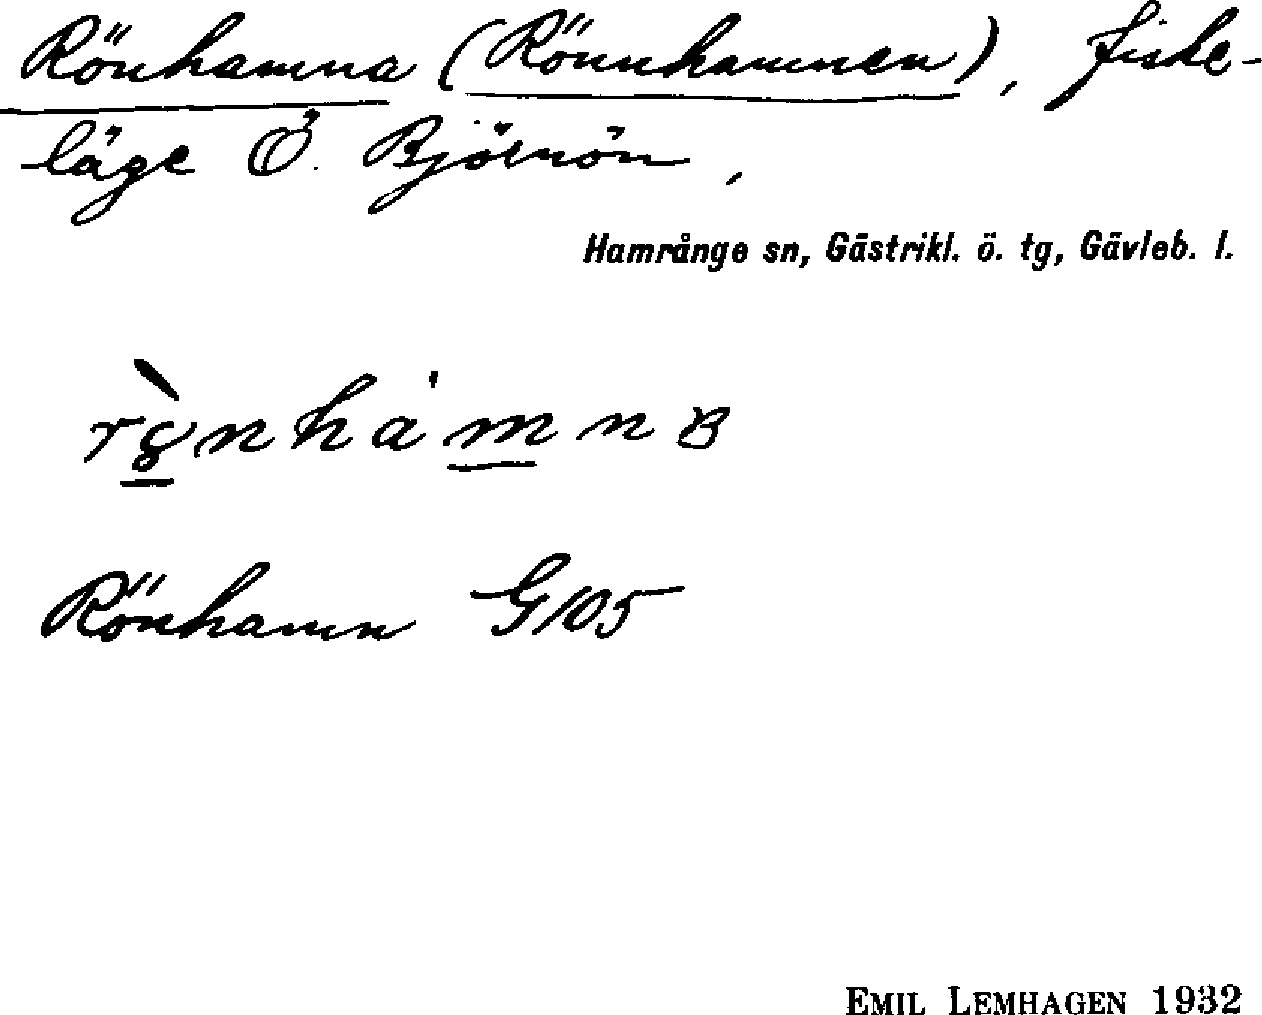 Rönhamna (Rönnhamnen), fiske-
läge Ö. Björnön,
Hamrånge sn, Gästrikl. ö. tg, Gävleb. l.
Rönhamn G105
EMIL LEMHAGEN 1932